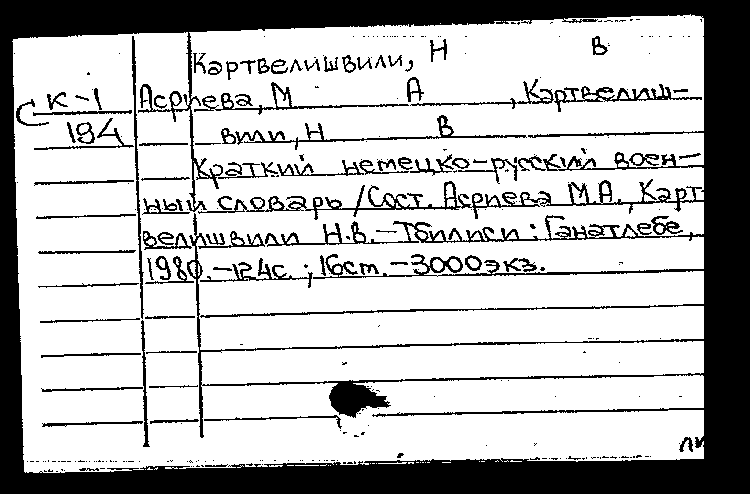 Картвелишвили, Н В
К-1 Асриева, М А , Картвелиш-
194 вили, Н В
Краткий немецко-русский воен-
ный словарь /Сост. Асриева М.А., Карт
велишвили Н.В.-Тбилиси: Ганатлебе,
1980.-124с. ; 16см.-3000экз.